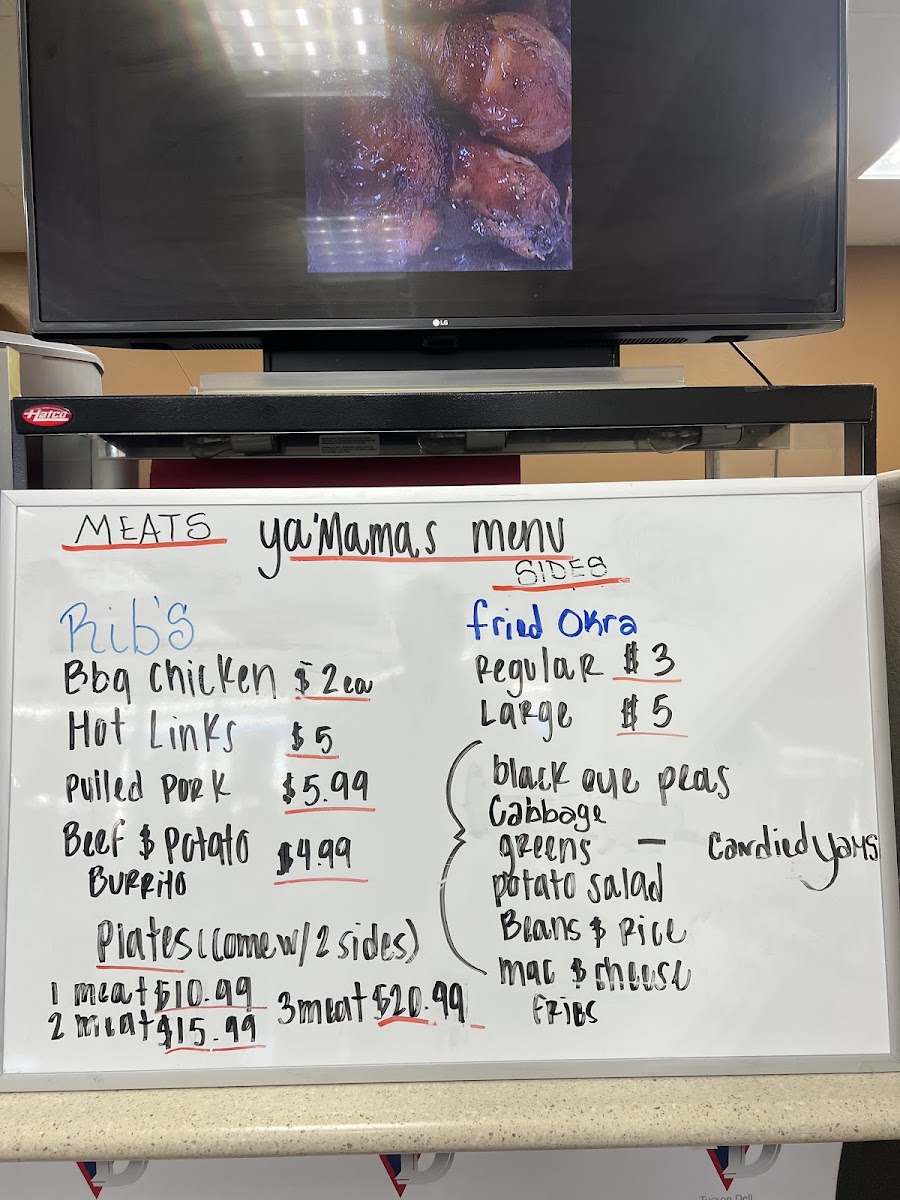 LG
Hatco
MEATS
ya'Mamas menu
SIDES
Rib's
Bbq chicken $2ea
Hot Links $5
Pulled Pork $5.99
Beef $ Potato $4.99
Burrito
Plates (come w/ 2 sides)
1 meat $10.99
2 meat $15.99
3 meat $20.99
fried Okra
Regular $3
Large $5
black eye peas
Cabbage
greens - Candied Yams
potato salad
Beans $ Rice
mac $ cheese
Fries
Tucson Deli